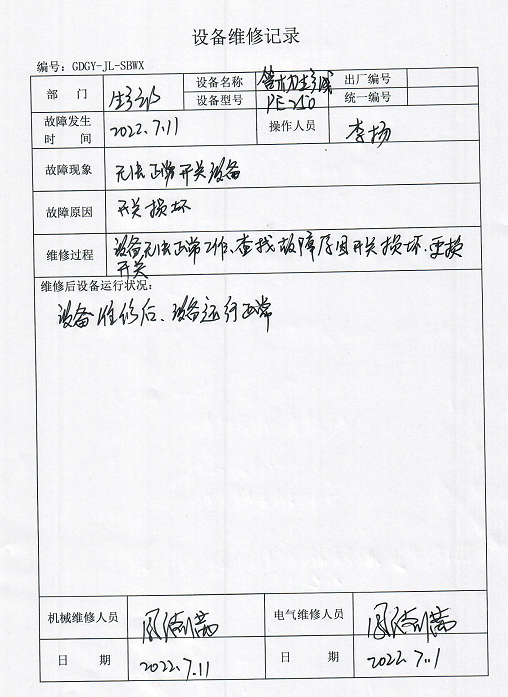 设备维修记录
编号：GDGY-JL-SBWX
部 门 生产部 设备名称 管材生产线 出厂编号
设备型号 PE250 统一编号
故障发生时 间 2022.7.11 操作人员 李扬
故障现象 无法正常开关设备
故障原因 开关损坏
维修过程 设备无法正常工作、查找故障原因开关损坏、更换
开关
维修后设备运行状况：
设备维修后、设备运行正常
机械维修人员 电气维修人员
日 期 2022.7.11 日 期 2022.7.11